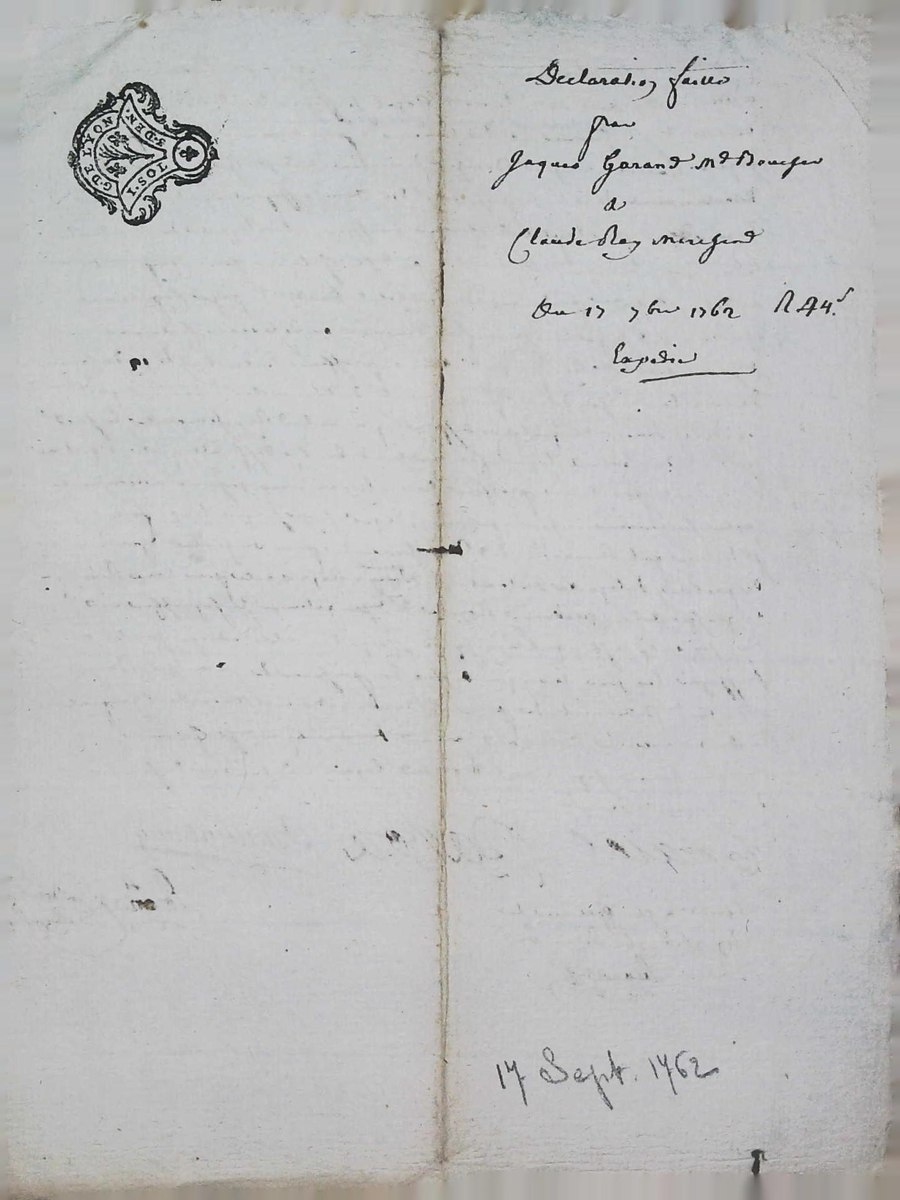 G. DE LYON
I. SOL
8. DEN.
Declaration faitte
par
Jaques Garand Md Boucher
a
Claude Rey Merchand
Du 17 7bre 1762
Expedié
17 Sept. 1762